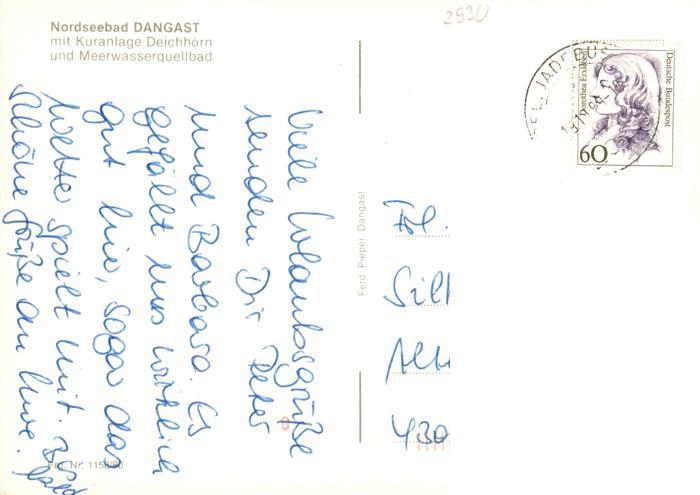 Nordseebad DANGAST
mit Kuranlage Deichhörn
und Meerwasserquellbad
2930
Deutsche Bundespost
Dorothea Erxleben
60
Viele Urlaubsgrüße
senden Dir Peter
und Barbara. Es
gefällt uns wirklich
gut hier, sogar das
Wetter spielt mit. Bis bald
Schöne Grüße an Uwe.
Ferd. Pieper, Dangast
Frl.
430
Nr. 1158/80